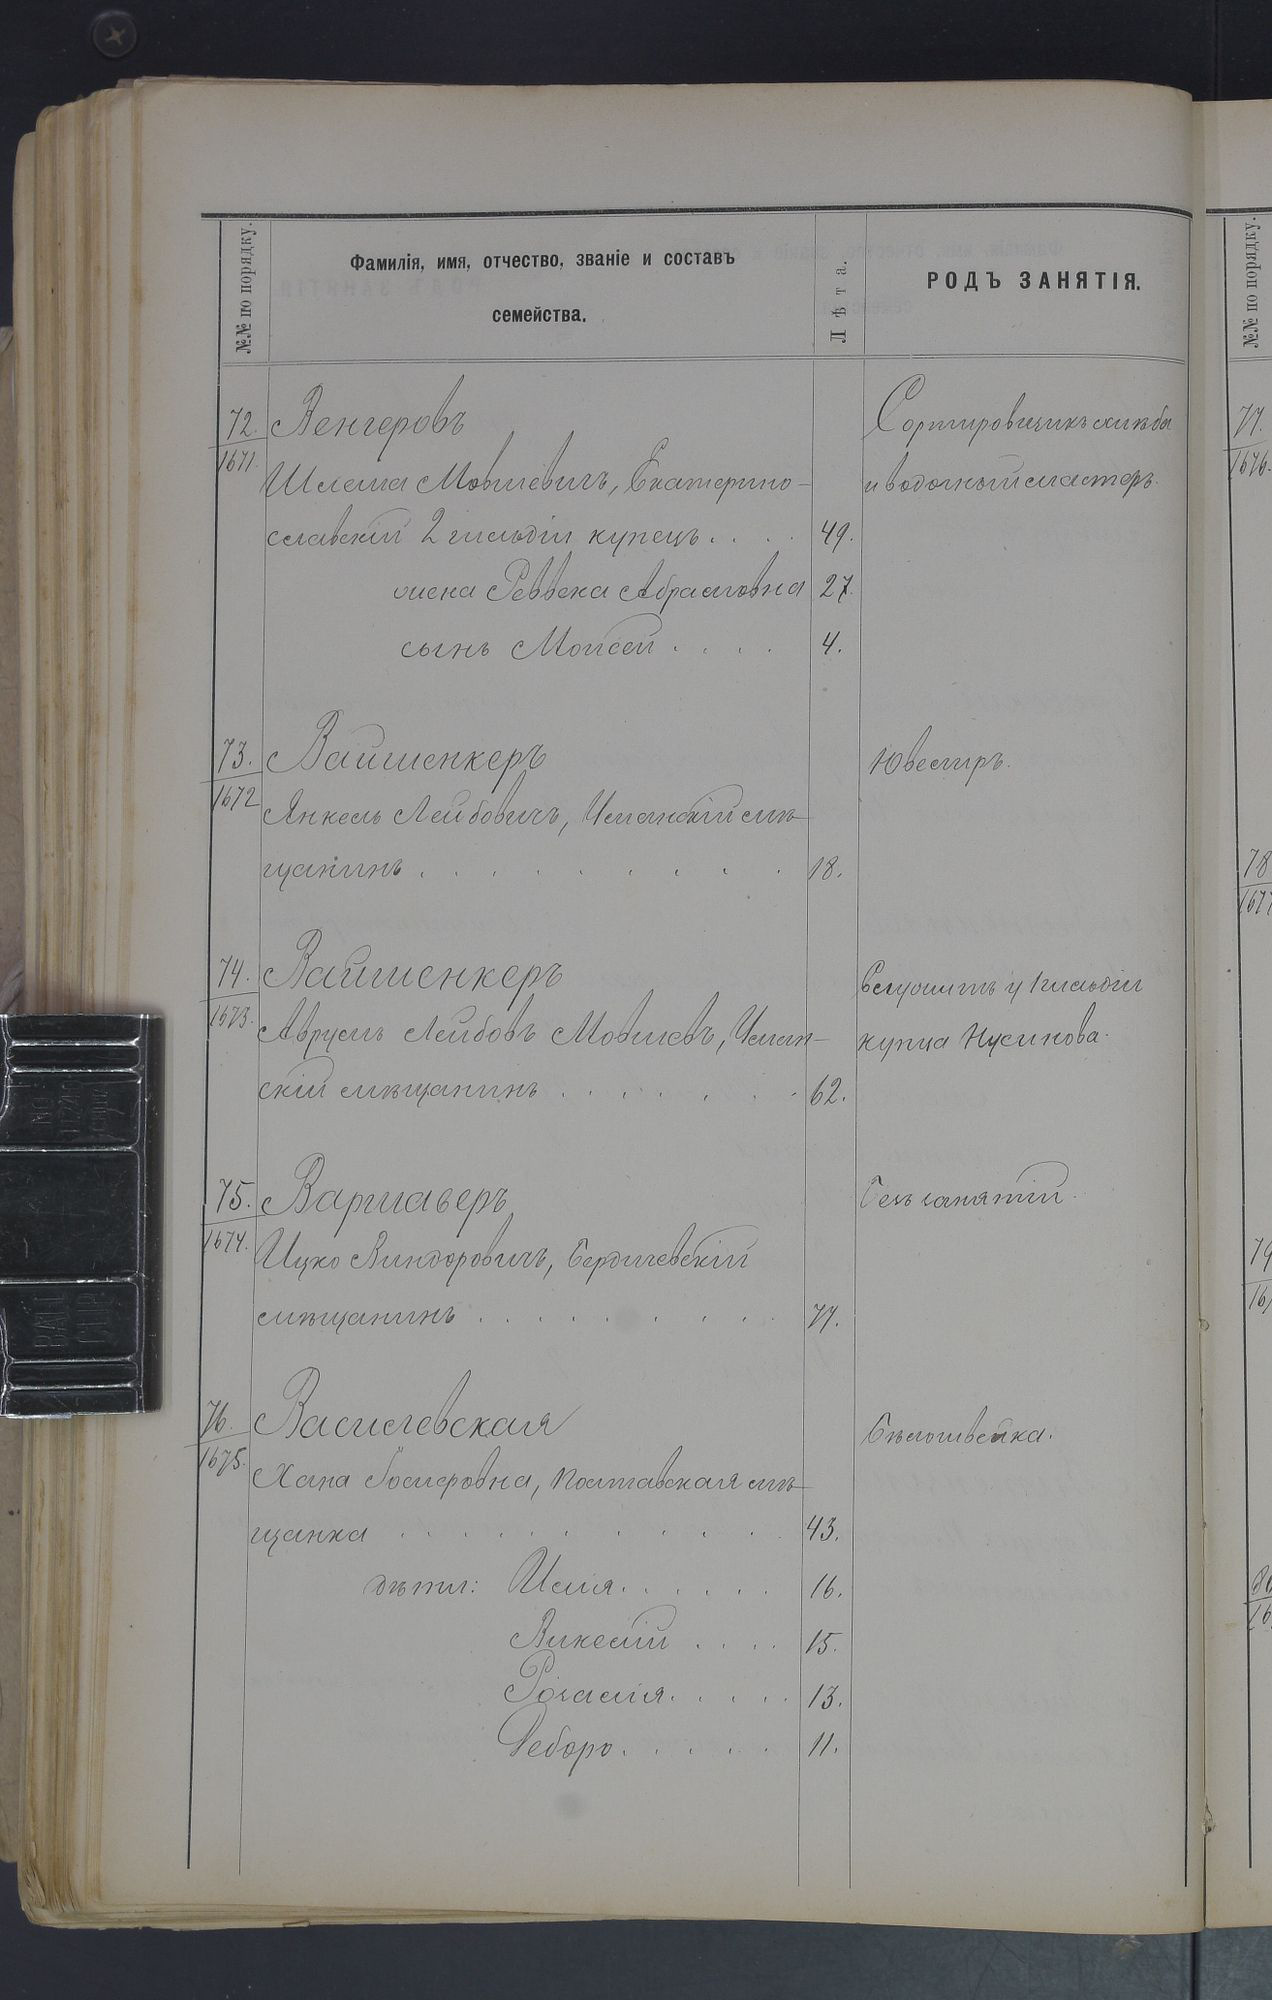 №№ по порядку.
Фамилія, имя, отчество, званіе и составъ
семейства.
Лѣта.
РОДЪ ЗАНЯТІЯ.
72.
1671.
Венгеровъ
Шлема Мовшевичъ, Екатерино-
славскій 2 гильдіи купецъ . . . . 49.
жена Реввека Абрамовна 27.
сынъ Моисей . . . . 4.
Сортировщикъ хлѣба
и водочный мастеръ.
73.
1672
Вайншенкеръ
Янкель Лейбовичъ, Уманскій мѣ-
щанинъ . . . . . . . . . 18.
Ювелиръ.
74.
1673.
Вайншенкеръ
Аврумъ Лейбовъ Мовшевъ, Уман-
скій мѣщанинъ . . . . . . 62.
Служитъ у 1 гильдіи
купца Нусинова.
75.
1674.
Варшаверъ
Ицко Виндоровичъ, Бердичевскій
мѣщанинъ . . . . . . . . 77.
Безъ занятій.
76.
1675.
Василевская
Хана Іосифовна, Полтавская мѣ-
щанка . . . . . . . . . . 43.
дѣти: Илія . . . . . . 16.
. . . . 15.
. . . . . 13.
Дебора . . . . . 11.
Бѣлошвейка.
№№ по порядку.
77.
1676.
78
1677
79
80